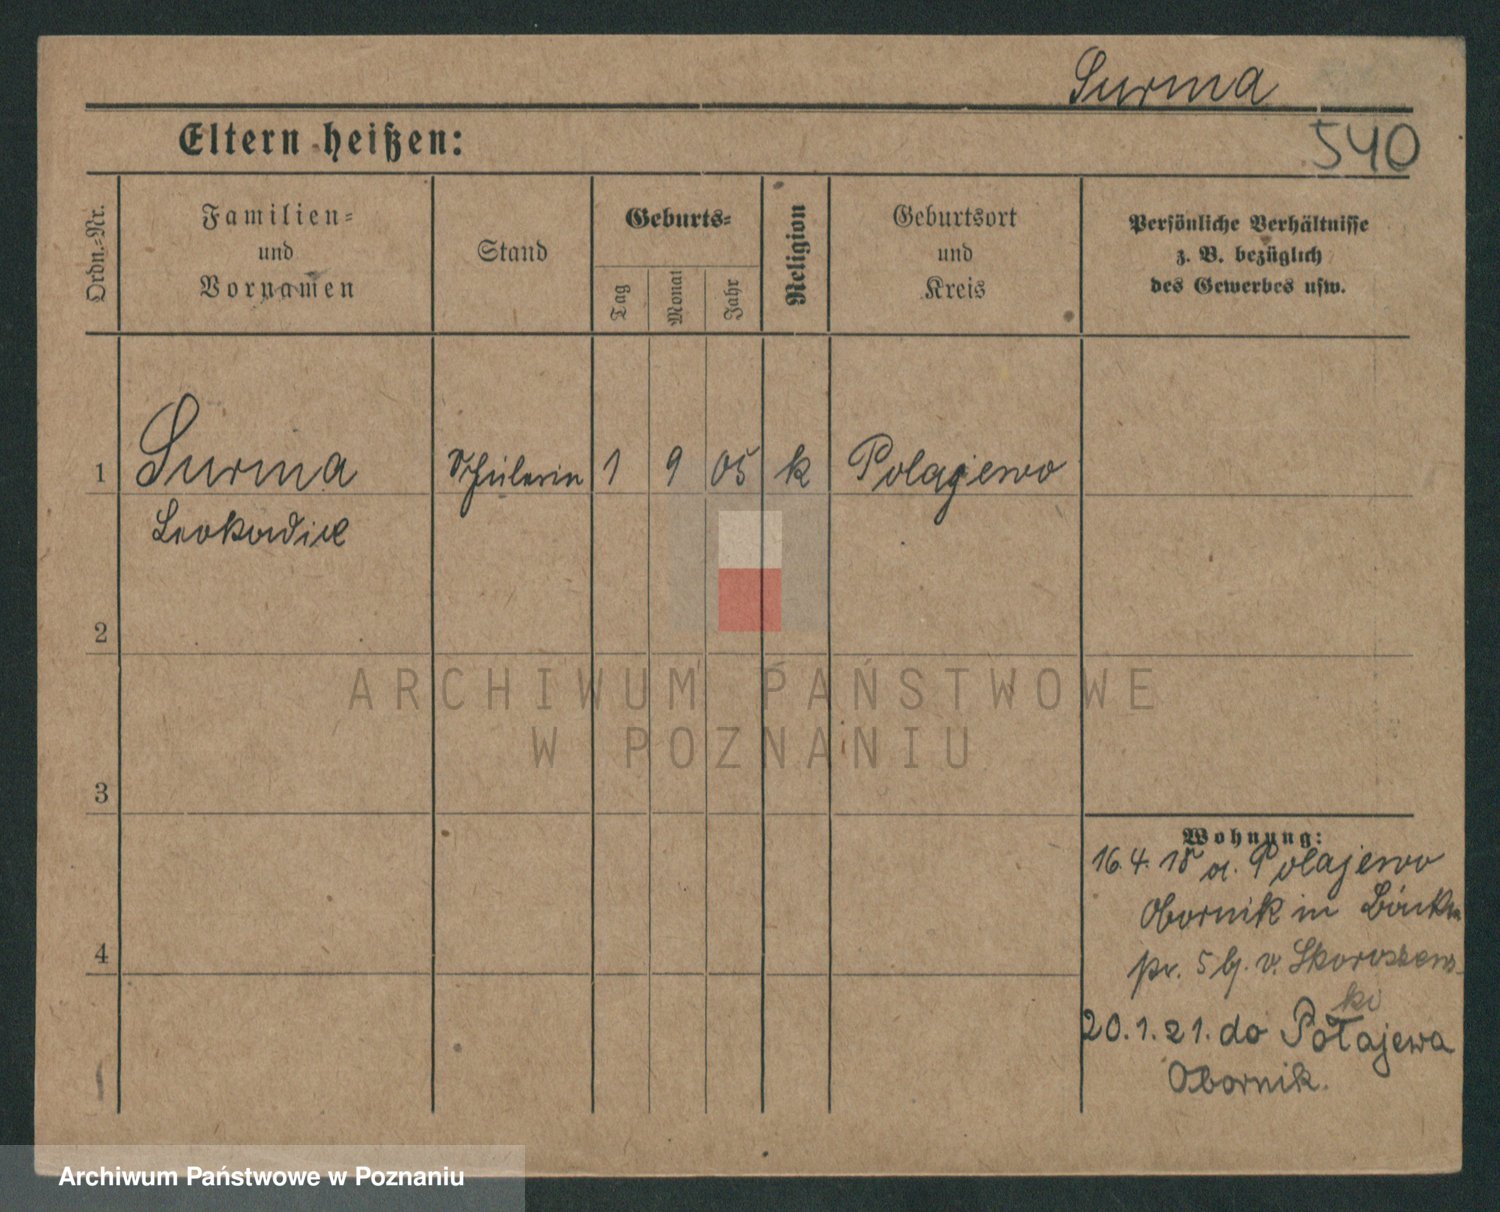 Surma
540
Eltern heißen:
Ordn.=Nr.
Familien=
und
Vornamen
Stand
Geburts=
Tag
Monat
Jahr
Religion
Geburtsort
und
Kreis
Persönliche Verhältnisse
z. B. bezüglich
des Gewerbes usw.
1 Surma Schülerin 1 9 05 k Polajewo
Leokadie
2
3
4
Wohnung:
16.4.18 a. Polajewo
Obornik in
pr. 5 bj. v. Skoroszews-
ki
20.1.21. do Połajewa
Obornik.
ARCHIWUM PAŃSTWOWE
W POZNANIU
Archiwum Państwowe w Poznaniu